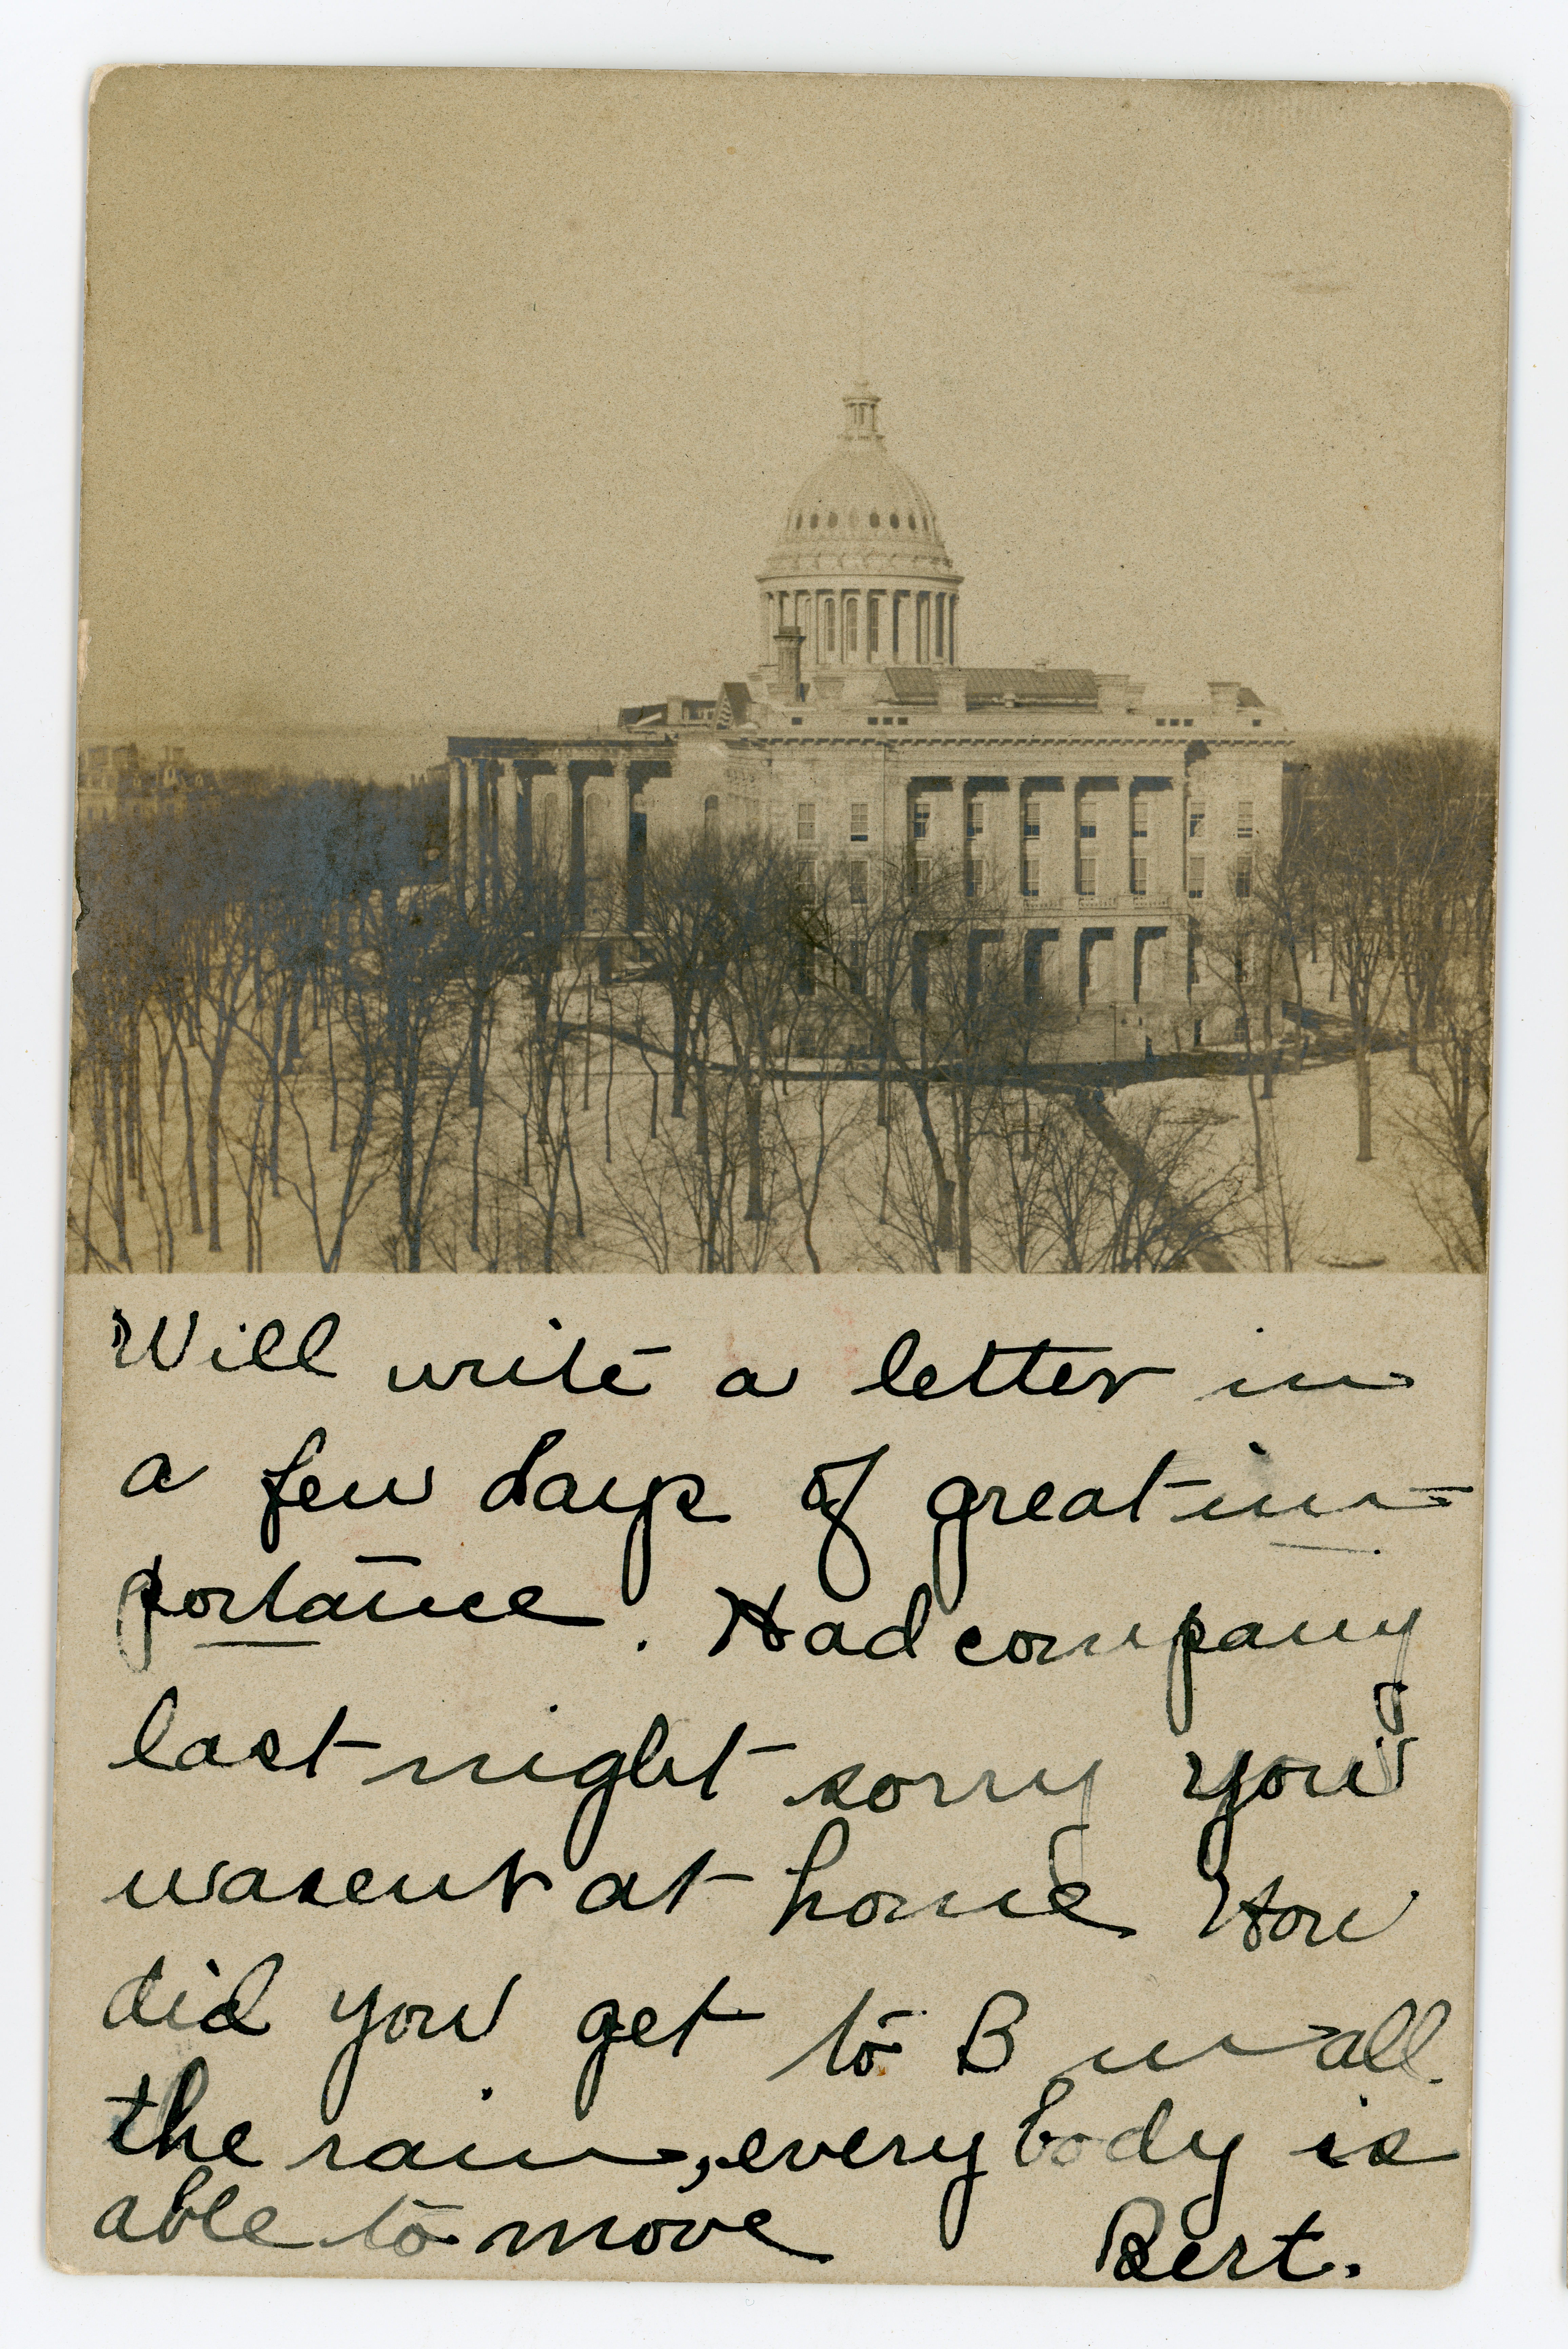 Will write a letter in
a few days of great im-
portance. Had company
last night sorry you
wasent at home How
did you get to B in all
the rain, everybody is
able to move Bert.